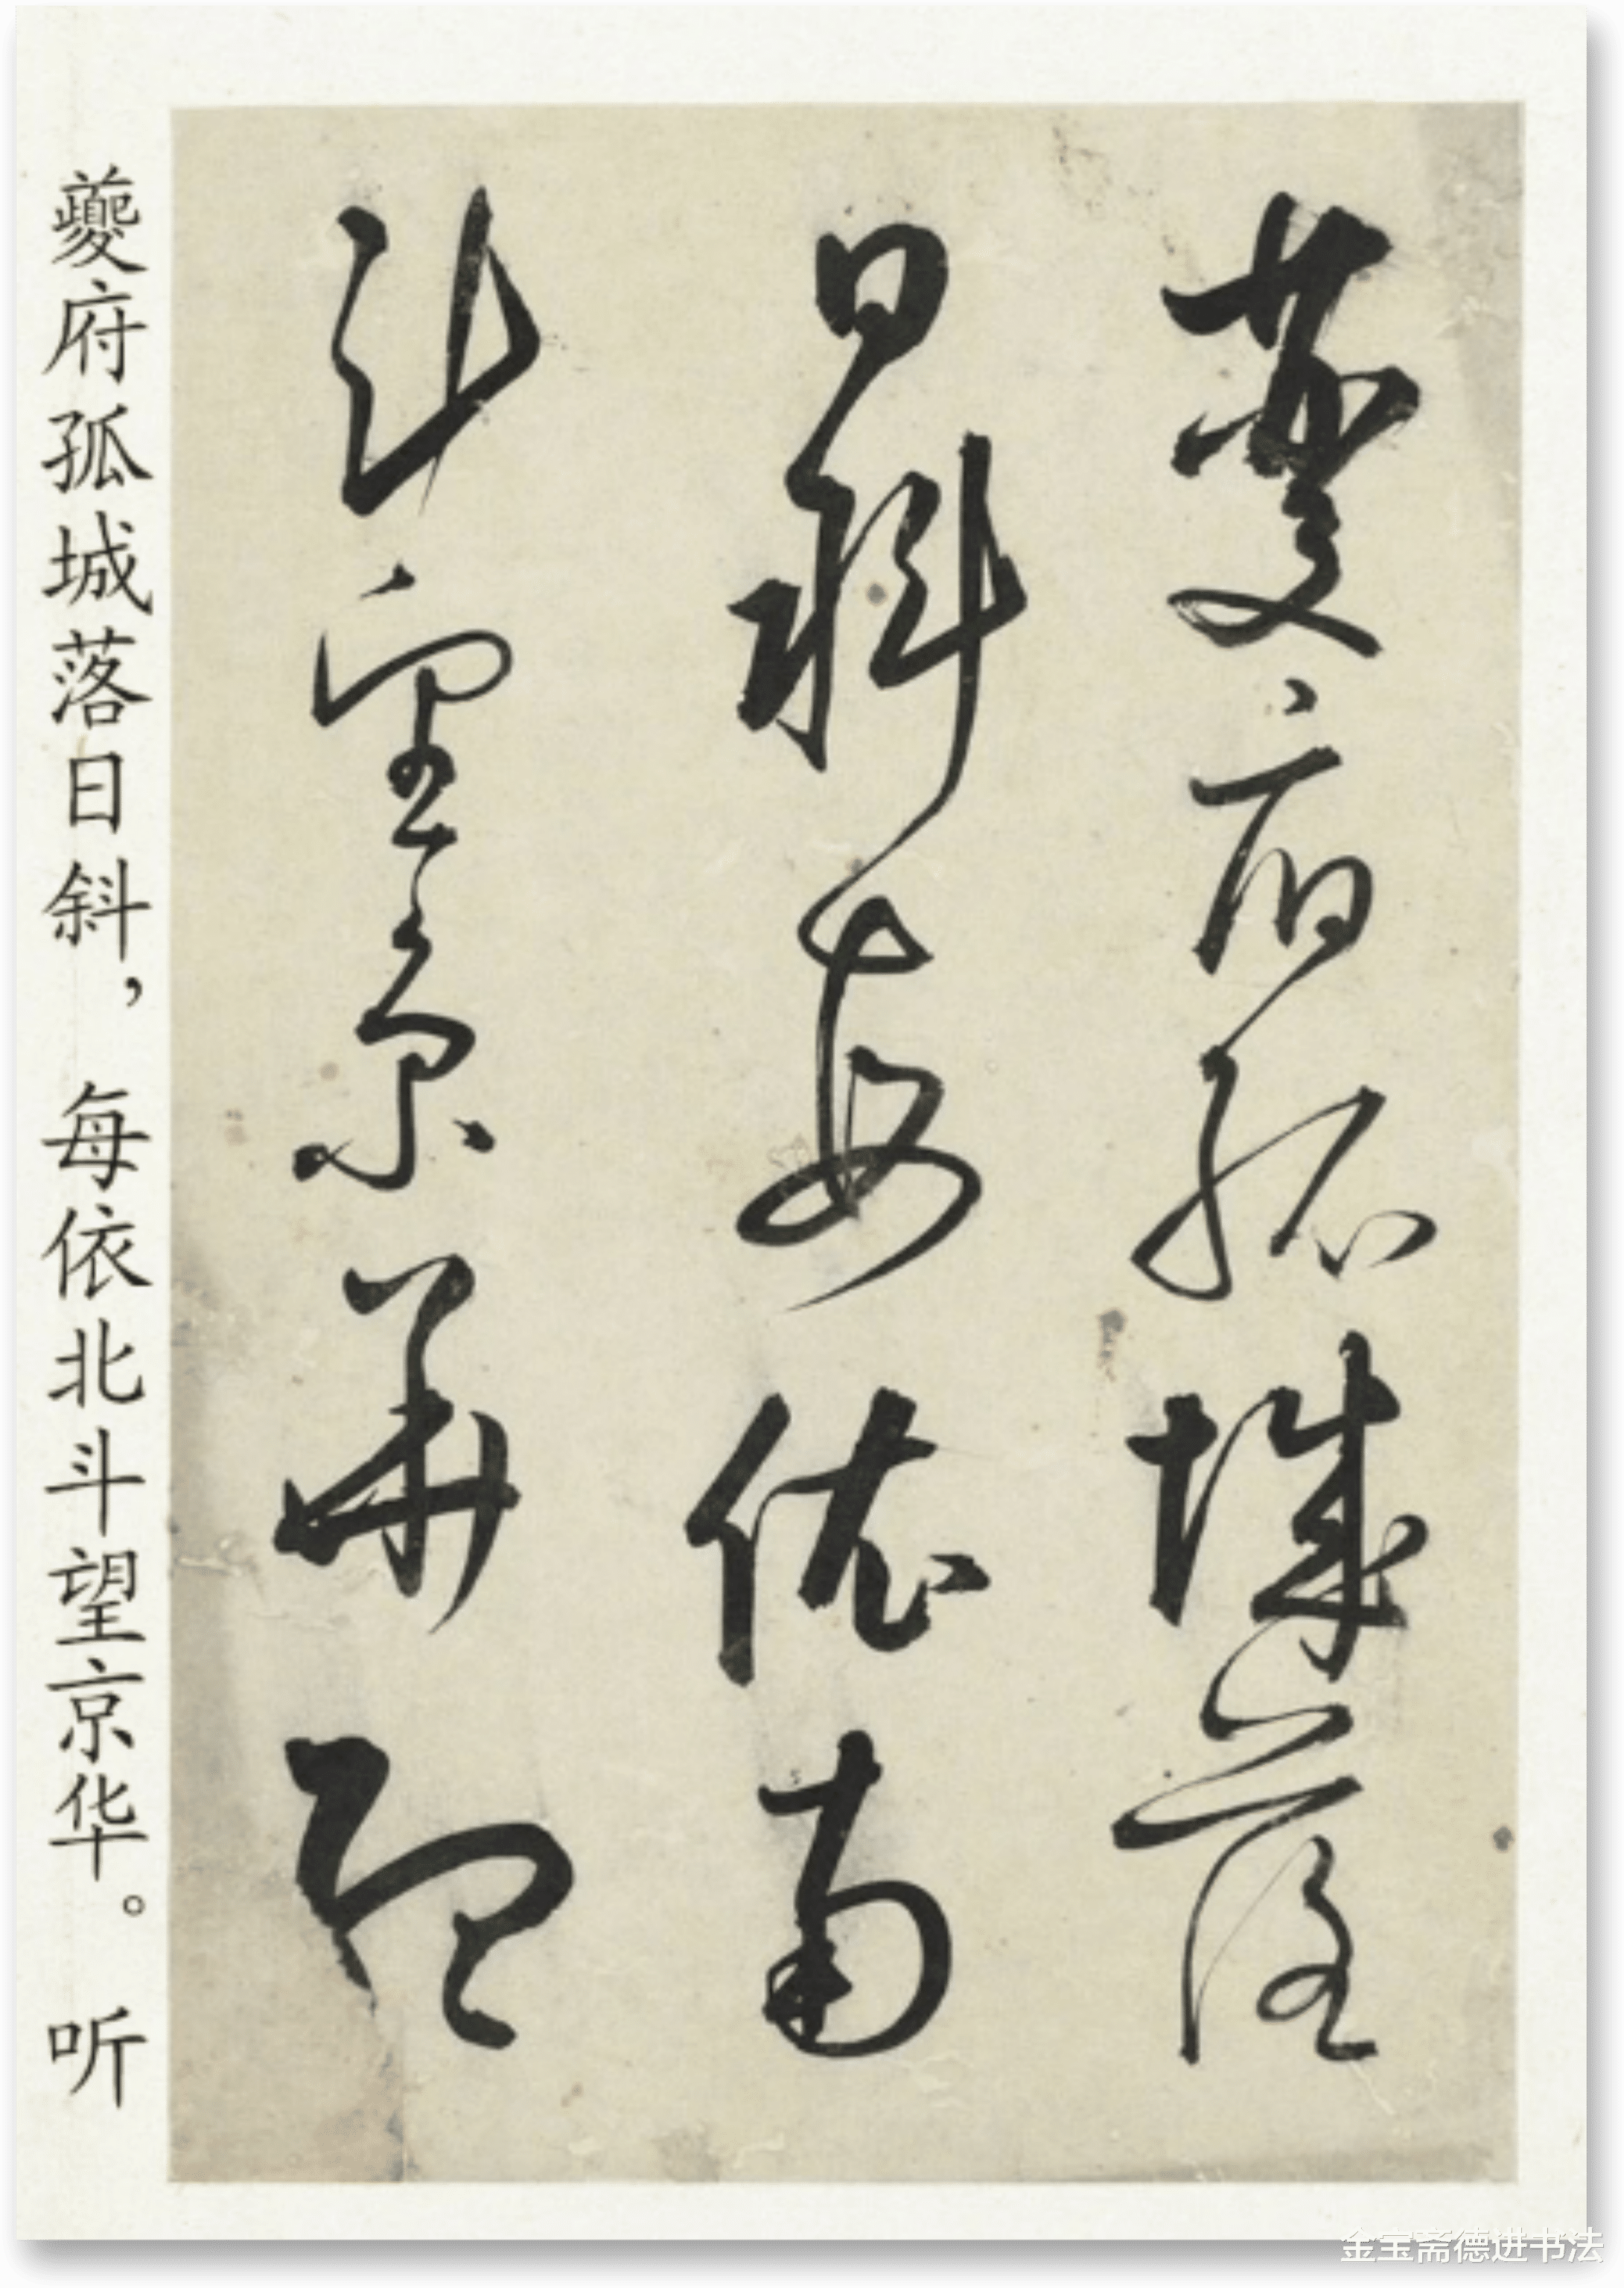 蘷府孤城落
日斜每依南
斗望京華聽
蘷府孤城落日斜，每依北斗望京华。听
金宝斋德进书法